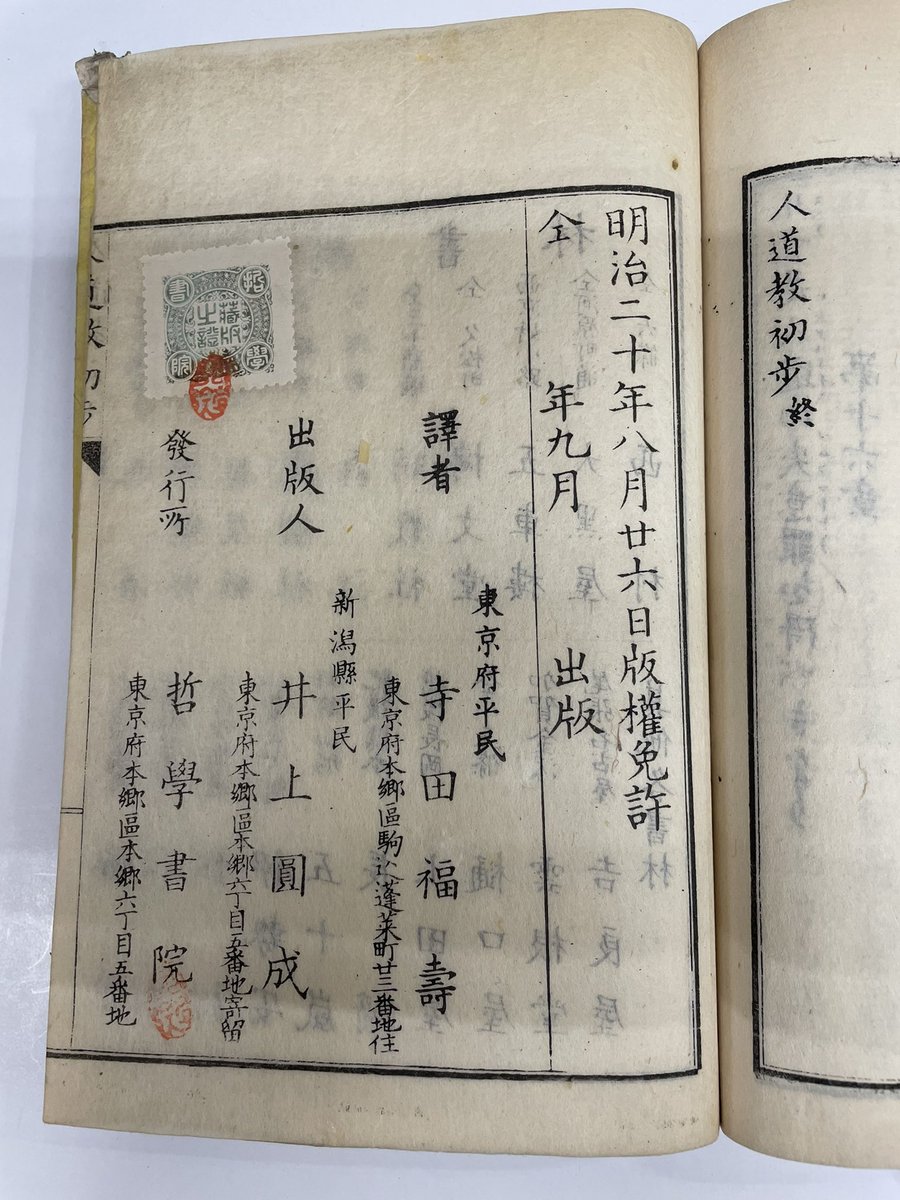 人道教初歩終
明治二十年八月廿六日版權免許
仝年九月出版
譯者
東京府平民
寺田福壽
東京府本鄉區駒込蓬莱町廿三番地住
出版人
新潟縣平民
井上圓成
東京府本鄉區本鄉六丁目五番地寄留
發行所
哲學書院
東京府本鄉區本鄉六丁目五番地
哲學書院
藏版之證
道教初歩